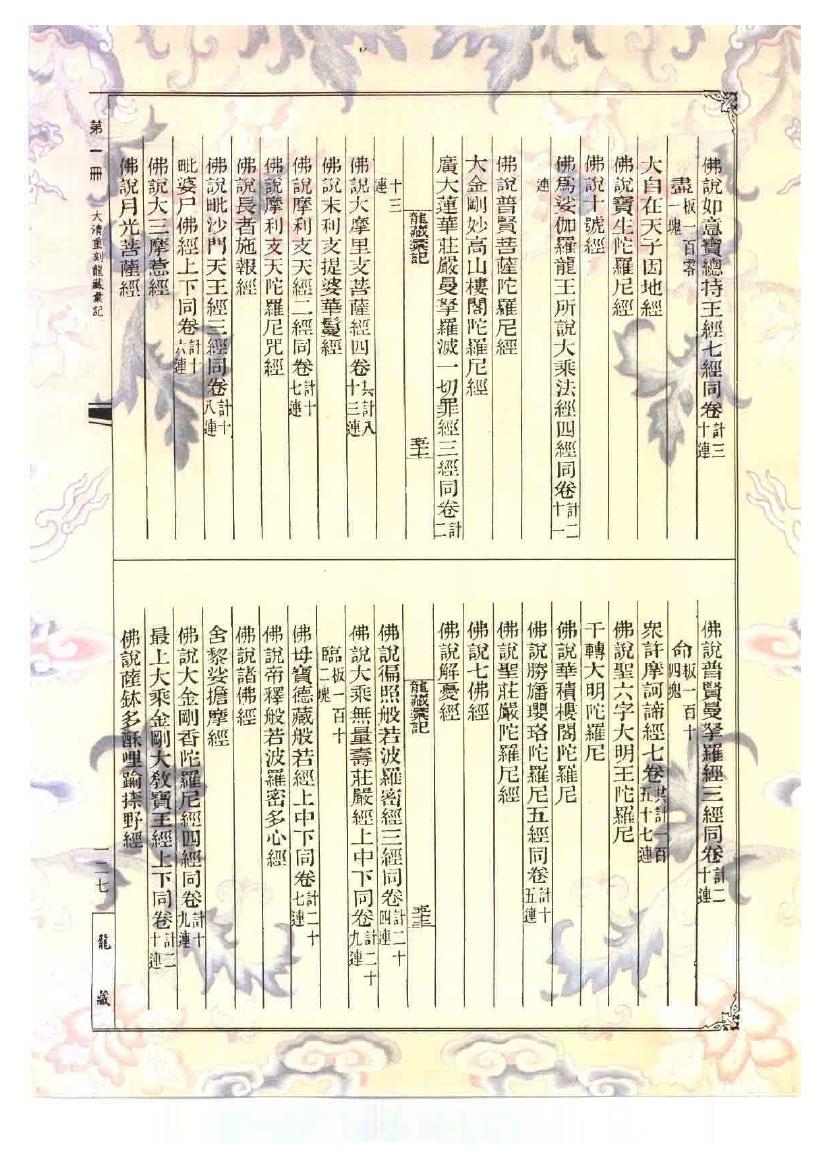 佛說如意寶總持王經七經同卷計三十連
盡板一百零一塊
大自在天子因地經
佛說寶生陀羅尼經
佛說十號經
佛爲娑伽羅龍王所說大乘法經四經同卷計二十一連
佛說普賢菩薩陀羅尼經
大金剛妙高山樓閣陀羅尼經
廣大蓮華莊嚴曼拏羅滅一切罪經三經同卷計二
龍藏彙記
十三連
佛說大摩里支菩薩經四卷共計八十三連
佛說末利支提婆華鬘經
佛說摩利支天經二經同卷計十七連
佛說摩利支天陀羅尼咒經
佛說長者施報經
佛說毗沙門天王經三經同卷計十八連
毗婆尸佛經上下同卷計十六連
佛說大三摩惹經
佛說月光菩薩經
佛說普賢曼拏羅經三經同卷計二十連
命板一百十四塊
眾許摩訶諦經七卷共計一百五十七連
佛說聖六字大明王陀羅尼
千轉大明陀羅尼
佛說華積樓閣陀羅尼
佛說勝旛瓔珞陀羅尼五經同卷計十五連
佛說聖莊嚴陀羅尼經
佛說七佛經
佛說解憂經
龍藏彙記
佛說徧照般若波羅密經三經同卷計二十四連
佛說大乘無量壽莊嚴經上中下同卷計二十九連
臨板一百十二塊
佛母寶德藏般若經上中下同卷計二十七連
佛說帝釋般若波羅密多心經
佛說諸佛經
舍黎娑擔摩經
佛說大金剛香陀羅尼經四經同卷計十九連
最上大乘金剛大教寶王經上下同卷計二十連
佛說薩鉢多酥哩踰捺野經
第一冊 大清重刻龍藏彙記
一二七
龍藏